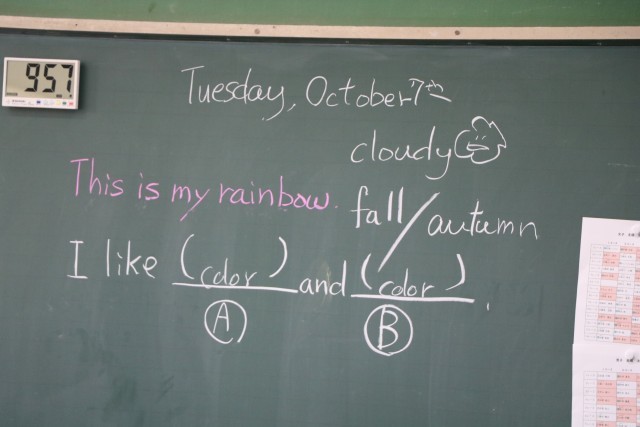 957
Tuesday, October 7th
cloudy
This is my rainbow.
fall / autumn
I like (color) and (color).
A B